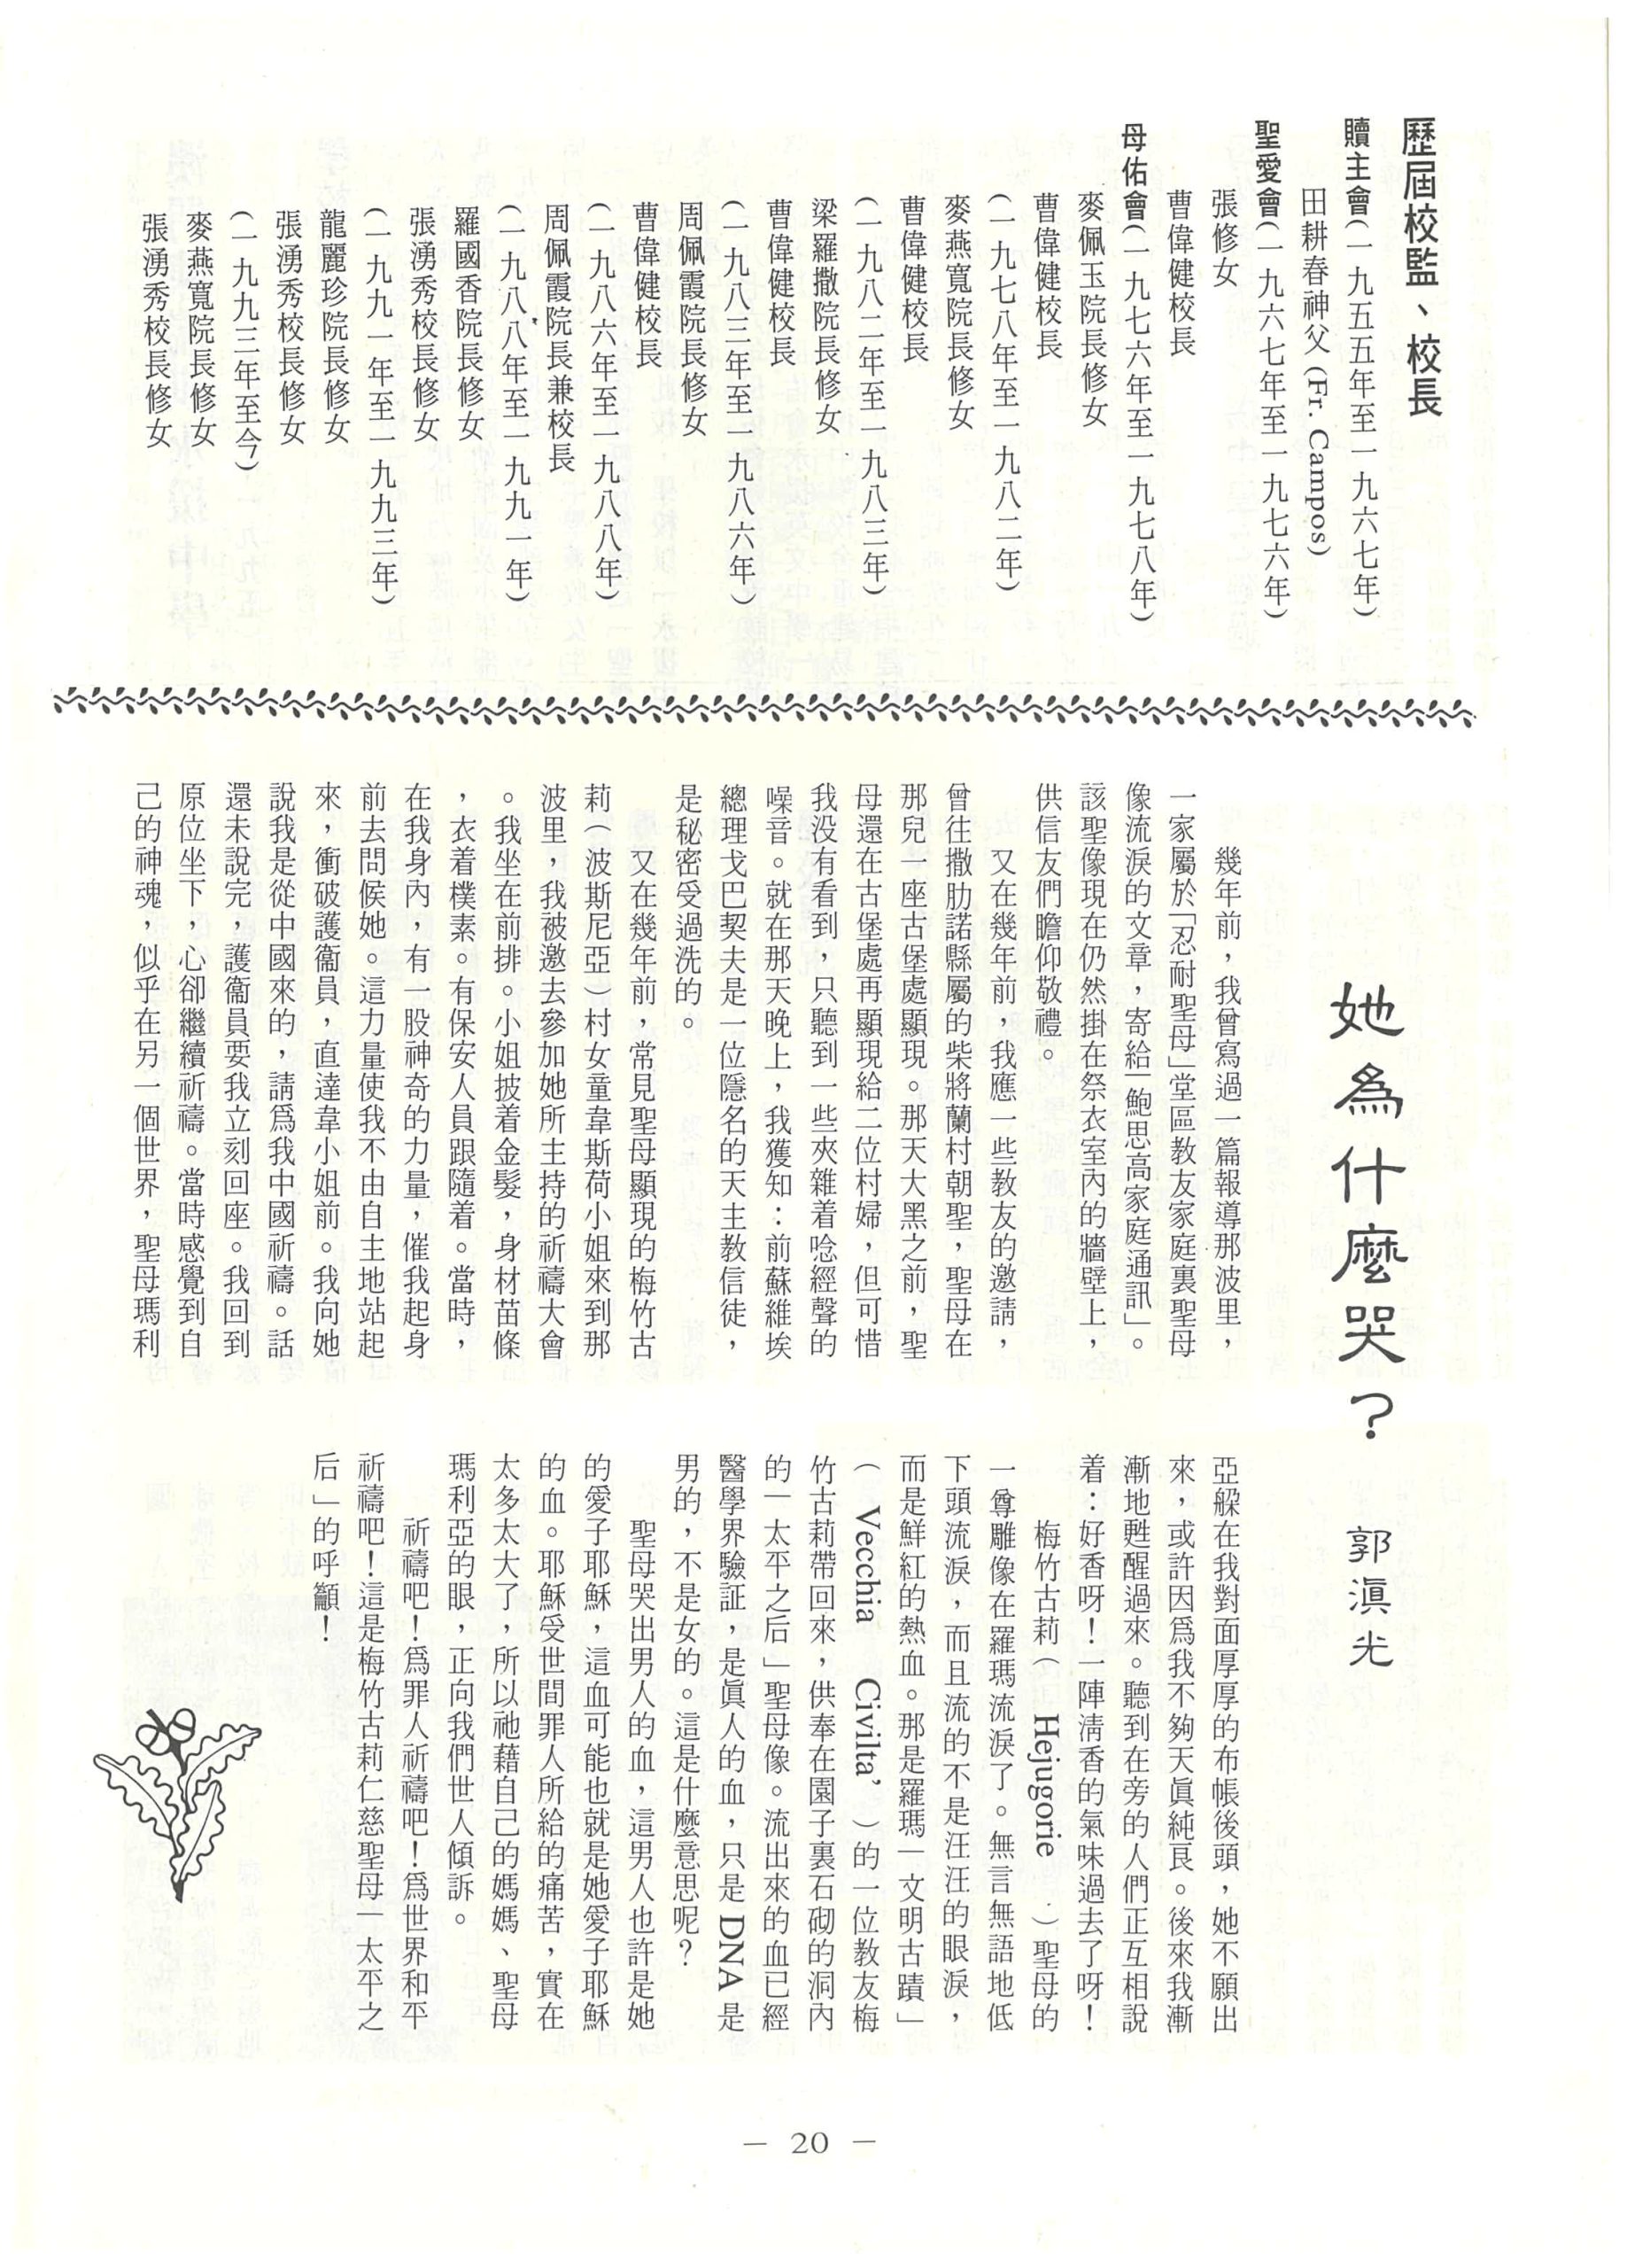 歷屆校監、校長
贖主會(一九五五年至一九六七年)
田耕春神父(Fr. Campos)
聖愛會(一九六七年至一九七六年)
張修女
曹偉健校長
母佑會(一九七六年至一九七八年)
麥佩玉院長修女
曹偉健校長
(一九七八年至一九八二年)
麥燕寬院長修女
曹偉健校長
(一九八二年至一九八三年)
梁羅撒院長修女
曹偉健校長
(一九八三年至一九八六年)
周佩霞院長修女
曹偉健校長
(一九八六年至一九八八年)
周佩霞院長兼校長
(一九八八年至一九九一年)
羅國香院長修女
張湧秀校長修女
(一九九一年至一九九三年)
龍麗珍院長修女
張湧秀校長修女
(一九九三年至今)
麥燕寬院長修女
張湧秀校長修女
她為什麼哭?
郭滇光
幾年前,我曾寫過一篇報導那波里,
一家屬於「忍耐聖母」堂區教友家庭裏聖母
像流淚的文章,寄給「鮑思高家庭通訊」。
該聖像現在仍然掛在祭衣室內的牆壁上,
供信友們瞻仰敬禮。
又在幾年前,我應一些教友的邀請,
曾往撒肋諾縣屬的柴將蘭村朝聖,聖母在
那兒一座古堡處顯現。那天大黑之前,聖
母還在古堡處再顯現給二位村婦,但可惜
我没有看到,只聽到一些夾雜着唸經聲的
噪音。就在那天晚上,我獲知:前蘇維埃
總理戈巴契夫是一位隱名的天主教信徒,
是秘密受過洗的。
又在幾年前,常見聖母顯現的梅竹古
莉(波斯尼亞)村女童韋斯荷小姐來到那
波里,我被邀去參加她所主持的祈禱大會
。我坐在前排。小姐披着金髮,身材苗條
,衣着樸素。有保安人員跟隨着。當時,
在我身內,有一股神奇的力量,催我起身
前去問候她。這力量使我不由自主地站起
來,衝破護衞員,直達韋小姐前。我向她
說我是從中國來的,請爲我中國祈禱。話
還未說完,護衞員要我立刻回座。我回到
原位坐下,心卻繼續祈禱。當時感覺到自
己的神魂,似乎在另一個世界,聖母瑪利
亞躱在我對面厚厚的布帳後頭,她不願出
來,或許因爲我不夠天眞純良。後來我漸
漸地甦醒過來。聽到在旁的人們正互相說
着:好香呀!一陣清香的氣味過去了呀!
梅竹古莉( Hejugorie )聖母的
一尊雕像在羅瑪流淚了。無言無語地低
下頭流淚,而且流的不是汪汪的眼淚,
而是鮮紅的熱血。那是羅瑪「文明古蹟」
( Vecchia Civilta’ )的一位教友梅
竹古莉帶回來,供奉在園子裏石砌的洞內
的「太平之后」聖母像。流出來的血已經
醫學界驗証,是眞人的血,只是 DNA 是
男的,不是女的。這是什麼意思呢?
聖母哭出男人的血,這男人也許是她
的愛子耶穌,這血可能也就是她愛子耶穌
的血。耶穌受世間罪人所給的痛苦,實在
太多太大了,所以祂藉自己的媽媽、聖母
瑪利亞的眼,正向我們世人傾訴。
祈禱吧!爲罪人祈禱吧!爲世界和平
祈禱吧!這是梅竹古莉仁慈聖母「太平之
后」的呼籲!
— 20 —